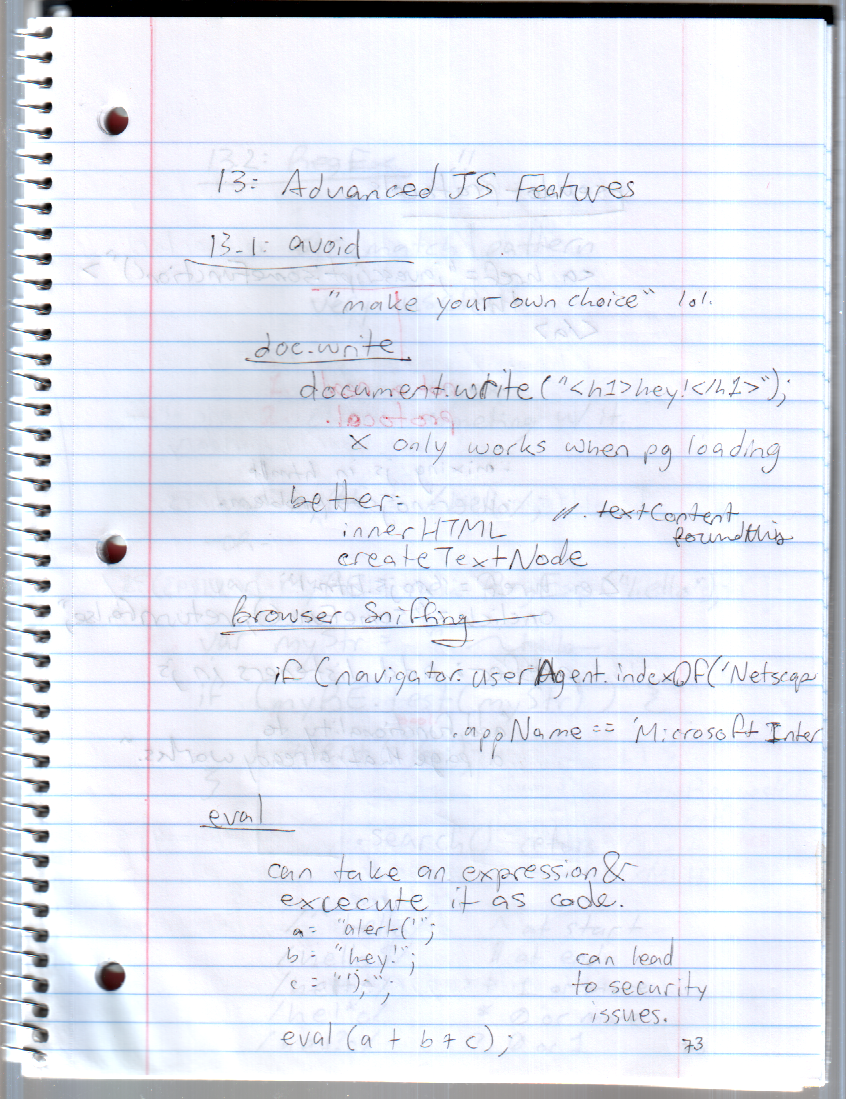 13: Advanced JS Features
13.1: avoid
"make your own choice" lol.
doc.write
document.write("<h1>hey!</h1>");
x only works when pg loading
better:
innerHTML // .textContent
createTextNode found this
Browser Sniffing
if (navigator.userAgent.indexOf('Netscap
.appName == 'Microsoft Inter
eval
can take an expression &
excecute it as code.
a = "alert('";
b = "hey!"; can lead
c = "');"; to security
issues.
eval (a + b + c);
73